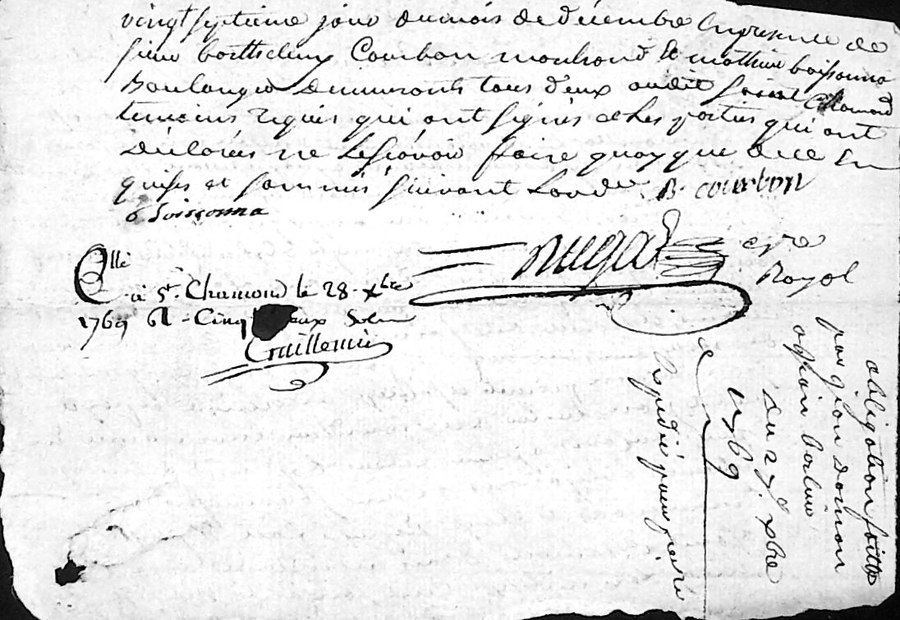 vingt septieme jour du mois de décembre En presence de
sieur barthelemy Courbon marchand Et mathieu boissonna
Boulanger demeurants tous deux audit saint Chamond
temoins requis qui ont signés et les parties qui ont
déclarés ne le sçavoir faire quoy que de ce En
quises et sommés suivant Lord.e B. courbon
boissonna
nre
Royal
Cllé
à St. Chamond le 28. xbre
1769 Cinq solz
Guillemin
obligation faitte
par jean
a
du 27e. xbre
1769
Expedié pour